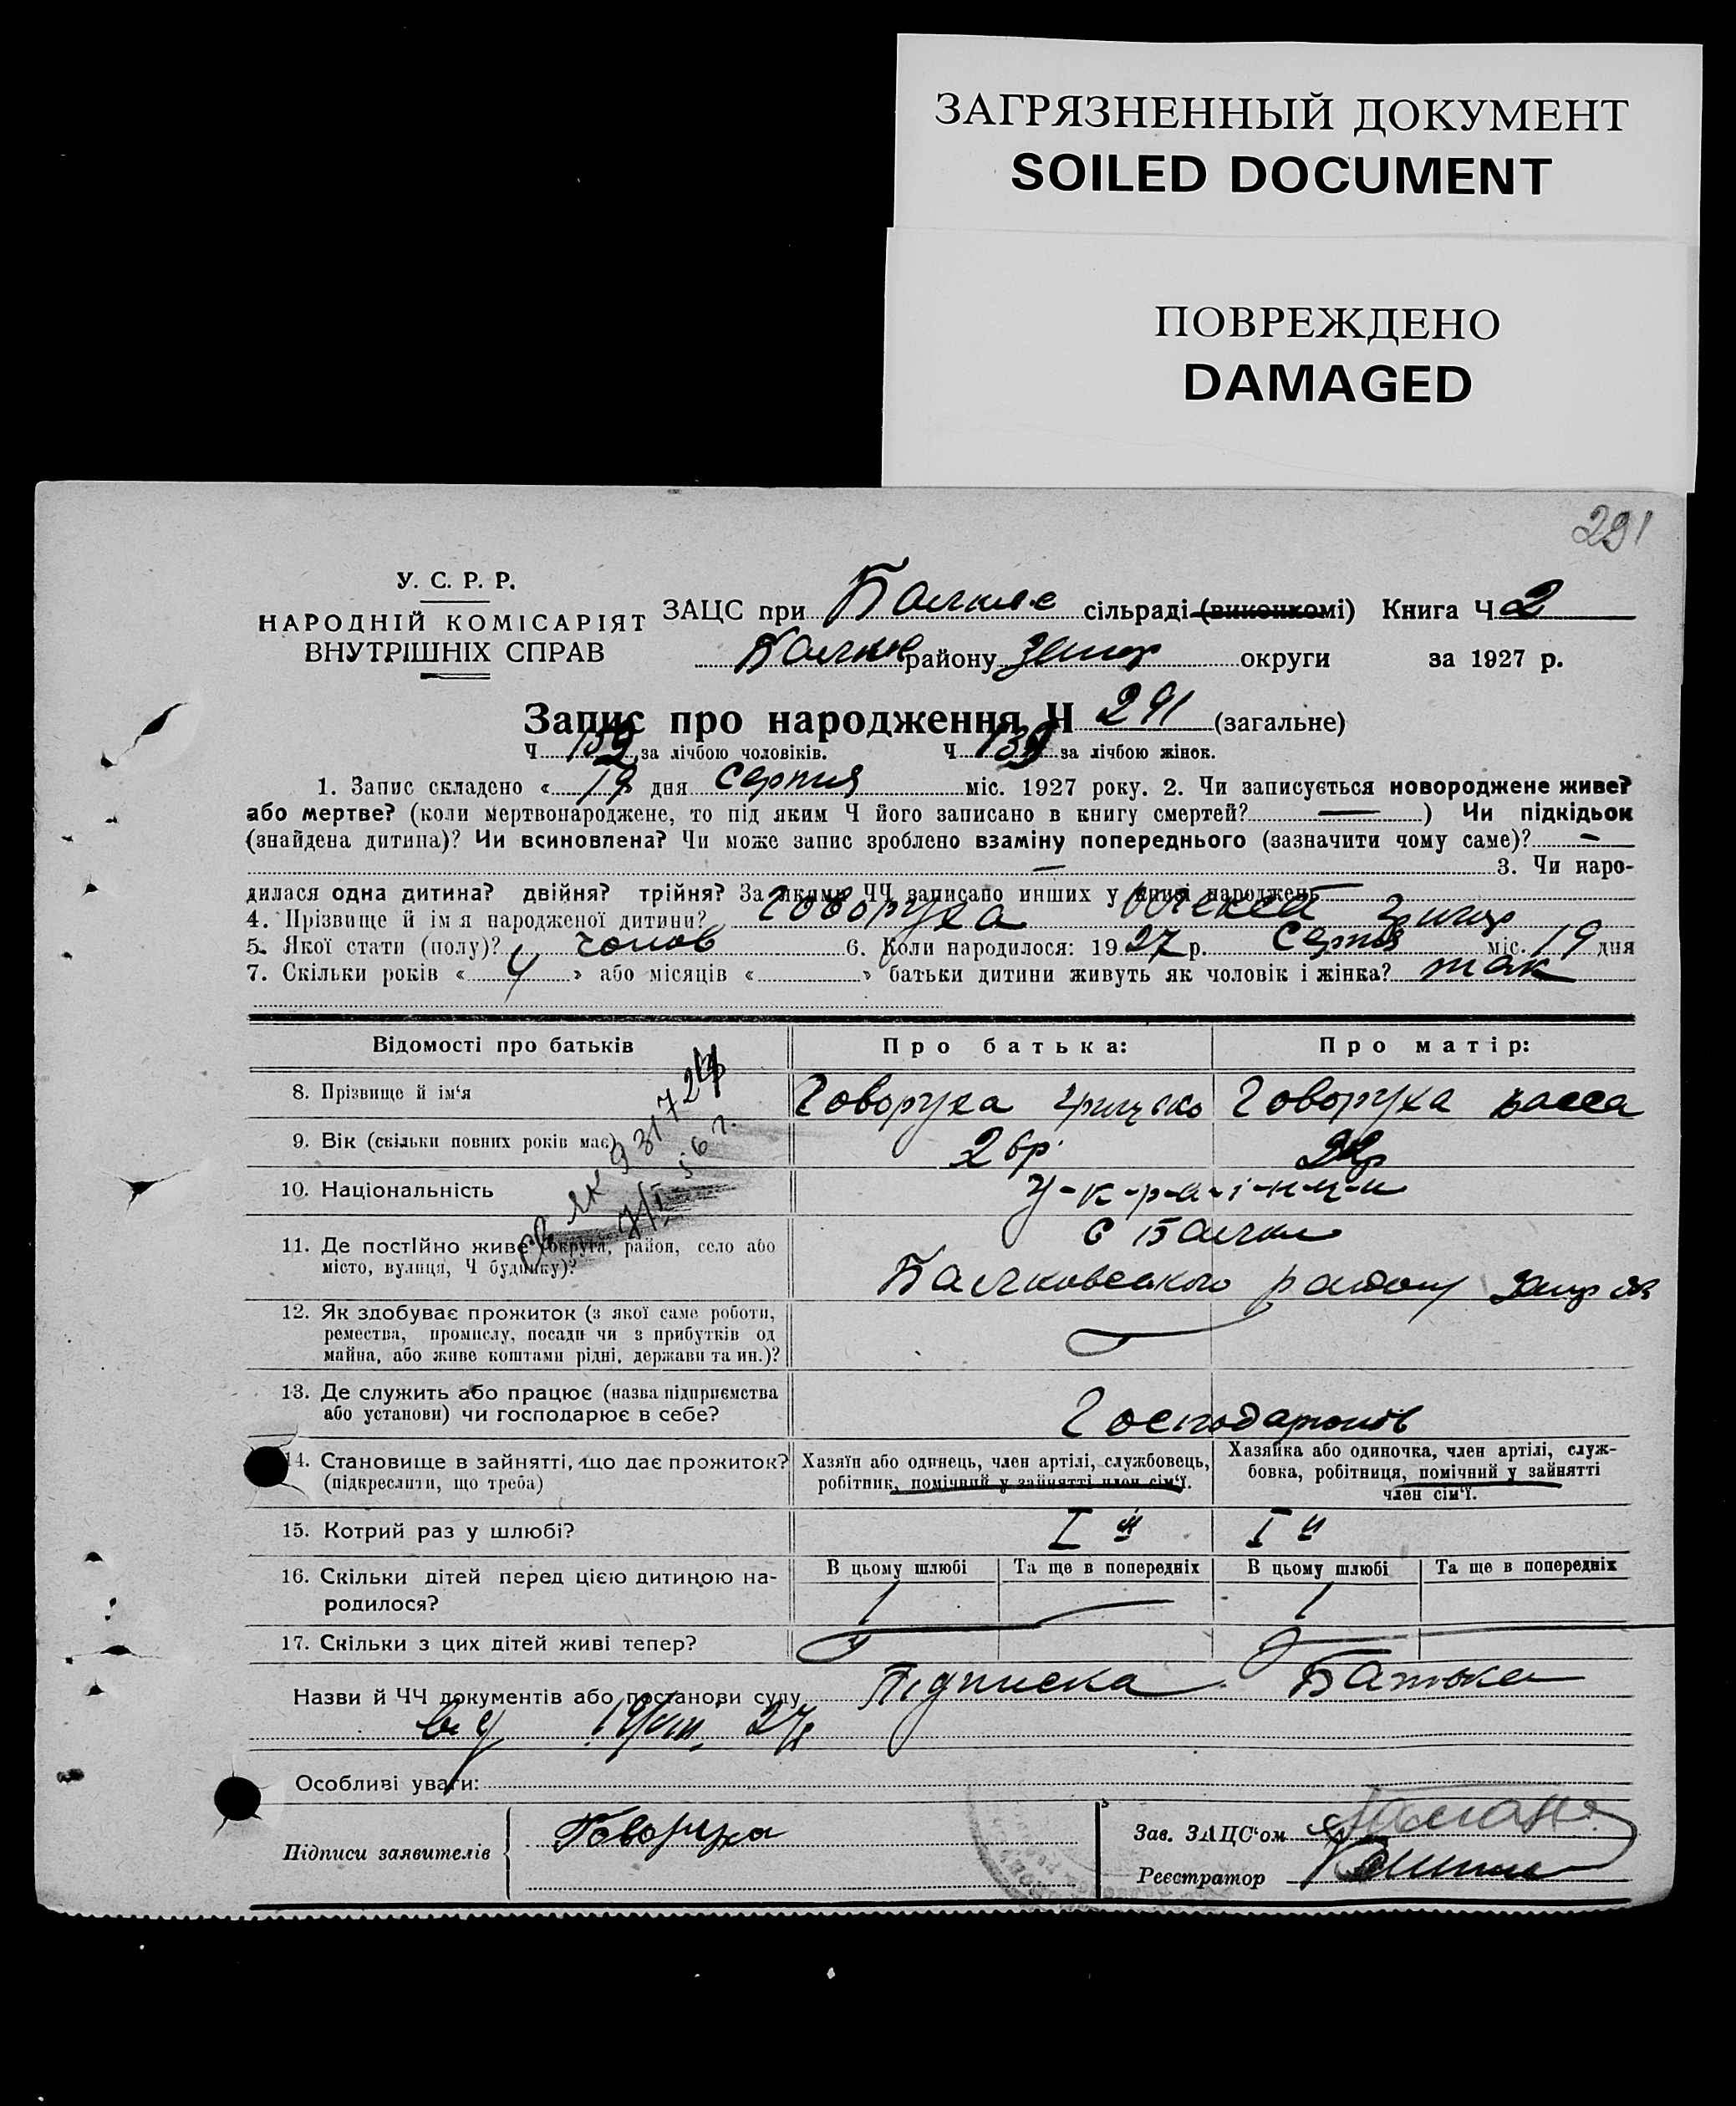 ЗАГРЯЗНЕННЫЙ ДОКУМЕНТ
SOILED DOCUMENT
ПОВРЕЖДЕНО
DAMAGED
291
У. С. Р. Р.
НАРОДНІЙ КОМІСАРІЯТ
ВНУТРІШНІХ СПРАВ
ЗАЦС при сільраді (виконкомі) Книга Ч 2
району Запор округи за 1927 р.
Запис про народження Ч 291 (загальне)
Ч 159 за лічбою чоловіків. Ч за лічбою жінок.
1. Запис складено « 19 дня Серпня міс. 1927 року. 2. Чи записується новороджене живе?
або мертве? (коли мертвонароджене, то під яким Ч його записано в книгу смертей? — ) Чи підкідьок
(знайдена дитина)? Чи всиновлена? Чи може запис зроблено взаміну попереднього (зазначити чому саме)? —
— 3. Чи наро-
дилася одна дитина? двійня? трійня? За якими ЧЧ записано инших у книзі народжень
4. Прізвище й ім'я народженої дитини? Говоруха Олексей
5. Якої стати (полу)? чолов 6. Коли народилося: 1927 р. Серпня міс. 19 дня
7. Скільки років « 4 » або місяців « » батьки дитини живуть як чоловік і жінка? так
Відомості про батьків Про батька: Про матір:
8. Прізвище й ім'я Говоруха Грицько Говоруха Васса
9. Вік (скільки повних років має) 26р
10. Національність У-к-р-а-ї-н-ц-и
11. Де постійно живе (округа, район, село або
місто, вулиця, Ч будинку)?
с Балки
Балковського району Запор ок
12. Як здобуває прожиток (з якої саме роботи,
ремества, промислу, посади чи з прибутків од
майна, або живе коштами рідні, держави та ин.)?
13. Де служить або працює (назва підприємства
або установи) чи господарює в себе?
14. Становище в зайнятті, що дає прожиток?
(підкреслити, що треба)
Хазяїн або одинець, член артілі, службовець,
робітник, помічний у зайнятті член сім'ї.
Хазяйка або одиночка, член артілі, служ-
бовка, робітниця, помічний у зайнятті
член сім'ї.
15. Котрий раз у шлюбі? I й I й
16. Скільки дітей перед цією дитиною на-
родилося?
В цьому шлюбі Та ще в попередніх В цьому шлюбі Та ще в попередніх
1 — 1
17. Скільки з цих дітей живі тепер?
Назви й ЧЧ документів або постанови суду Підписка Батька
від 19/VIII 27р
Особливі уваги:
Підписи заявителів Говоруха
Зав. ЗАЦС'ом
Реєстратор